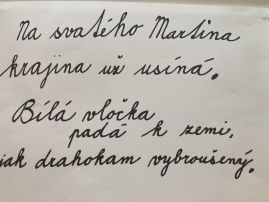 Na svatého Martina
krajina už usíná.
Bílá vločka
padá k zemi,
jak drahokam vybroušený.